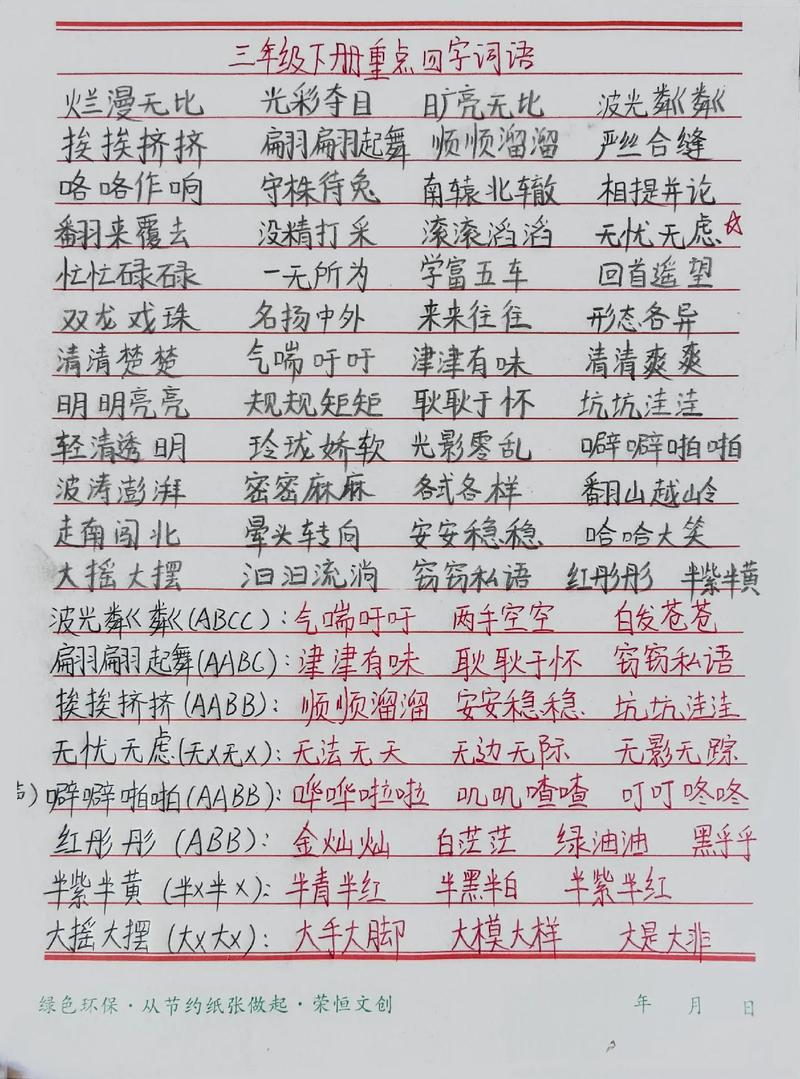 三年级下册重点四字词语
烂漫无比 光彩夺目 旷亮无比 波光粼粼
挨挨挤挤 翩翩起舞 顺顺溜溜 严丝合缝
咯咯作响 守株待兔 南辕北辙 相提并论
翻来覆去 没精打采 滚滚滔滔 无忧无虑☆
忙忙碌碌 一无所为 学富五车 回首遥望
双龙戏珠 名扬中外 来来往往 形态各异
清清楚楚 气喘吁吁 津津有味 清清爽爽
明明亮亮 规规矩矩 耿耿于怀 坑坑洼洼
轻清透明 玲珑娇软 光影零乱 噼噼啪啪
波涛澎湃 密密麻麻 各式各样 翻山越岭
走南闯北 晕头转向 安安稳稳 哈哈大笑
大摇大摆 汩汩流淌 窃窃私语 红彤彤 半紫半黄
波光粼粼(ABCC):气喘吁吁 两手空空 白发苍苍
翩翩起舞(AABC):津津有味 耿耿于怀 窃窃私语
挨挨挤挤(AABB):顺顺溜溜 安安稳稳 坑坑洼洼
无忧无虑(无x无x):无法无天 无边无际 无影无踪
)噼噼啪啪(AABB):哗哗啦啦 叽叽喳喳 叮叮咚咚
红彤彤(ABB):金灿灿 白茫茫 绿油油 黑乎乎
半紫半黄(半x半x):半青半红 半黑半白 半紫半红
大摇大摆(大x大x):大手大脚 大模大样 大是大非
绿色环保·从节约纸张做起·荣恒文创 年 月 日